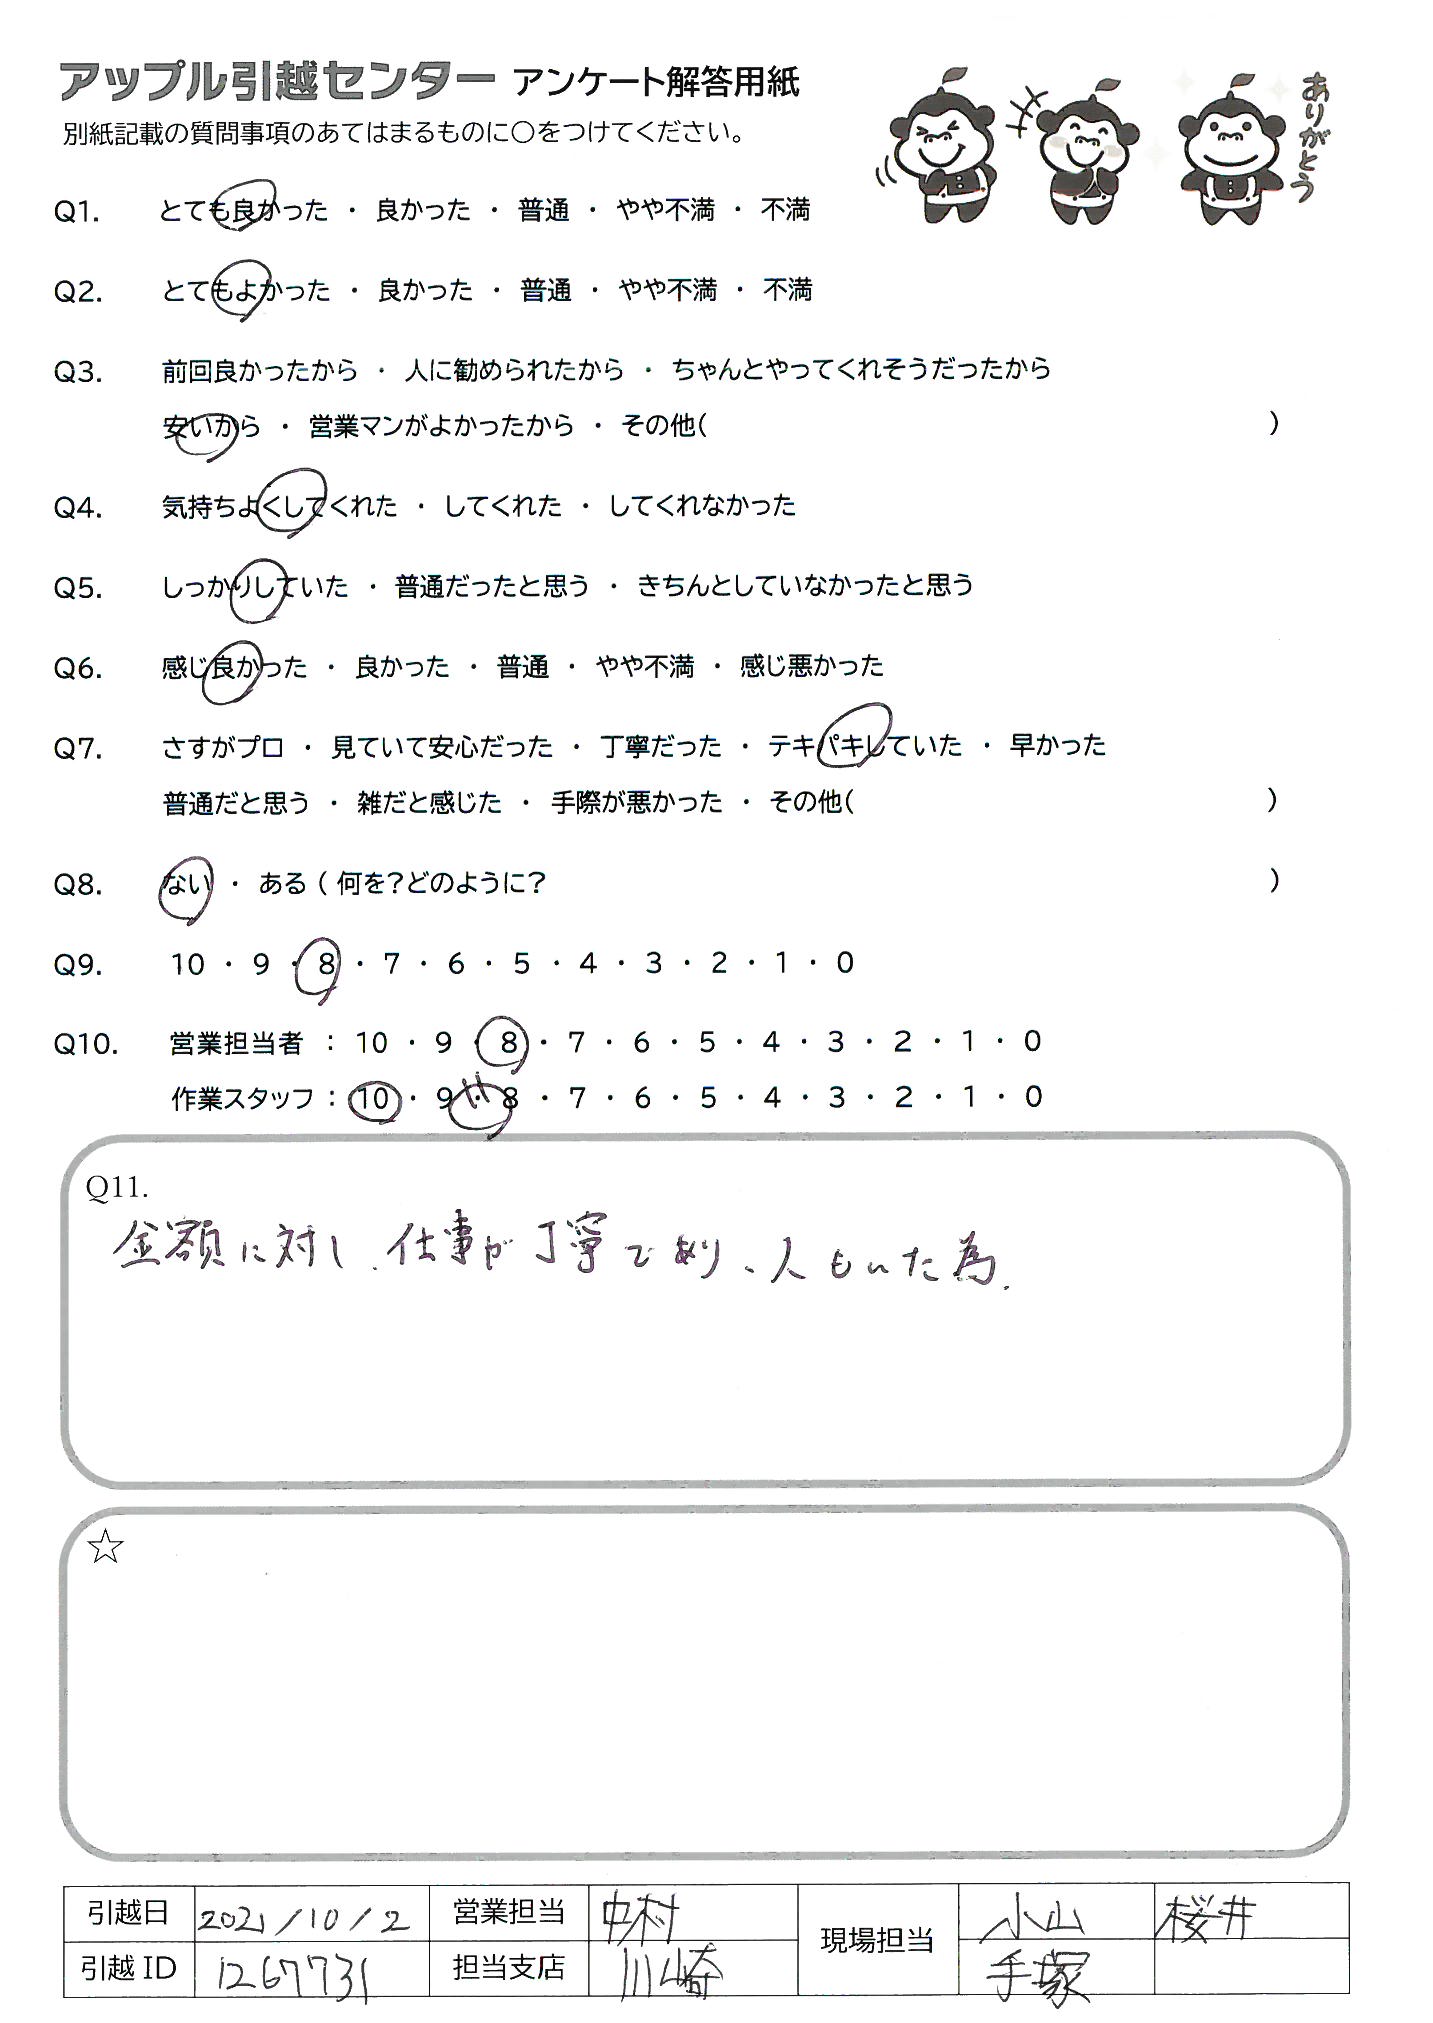 アップル引越センター アンケート解答用紙
別紙記載の質問事項のあてはまるものに○をつけてください。
ありがとう
Q1. とても良かった ・ 良かった ・ 普通 ・ やや不満 ・ 不満
Q2. とてもよかった ・ 良かった ・ 普通 ・ やや不満 ・ 不満
Q3. 前回良かったから ・ 人に勧められたから ・ ちゃんとやってくれそうだったから
安いから ・ 営業マンがよかったから ・ その他( )
Q4. 気持ちよくしてくれた ・ してくれた ・ してくれなかった
Q5. しっかりしていた ・ 普通だったと思う ・ きちんとしていなかったと思う
Q6. 感じ良かった ・ 良かった ・ 普通 ・ やや不満 ・ 感じ悪かった
Q7. さすがプロ ・ 見ていて安心だった ・ 丁寧だった ・ テキパキしていた ・ 早かった
普通だと思う ・ 雑だと感じた ・ 手際が悪かった ・ その他( )
Q8. ない ・ ある ( 何を?どのように? )
Q9. 10 ・ 9 ・ 8 ・ 7 ・ 6 ・ 5 ・ 4 ・ 3 ・ 2 ・ 1 ・ 0
Q10. 営業担当者 : 10 ・ 9 ・ 8 ・ 7 ・ 6 ・ 5 ・ 4 ・ 3 ・ 2 ・ 1 ・ 0
作業スタッフ : 10 ・ 9 ・ 8 ・ 7 ・ 6 ・ 5 ・ 4 ・ 3 ・ 2 ・ 1 ・ 0
Q11.
金額に対し、仕事が丁寧であり、人もいた為.
☆
引越日 2021/10/2 営業担当 中村 現場担当 小山 桜井
引越ID 1267731 担当支店 川崎 手塚